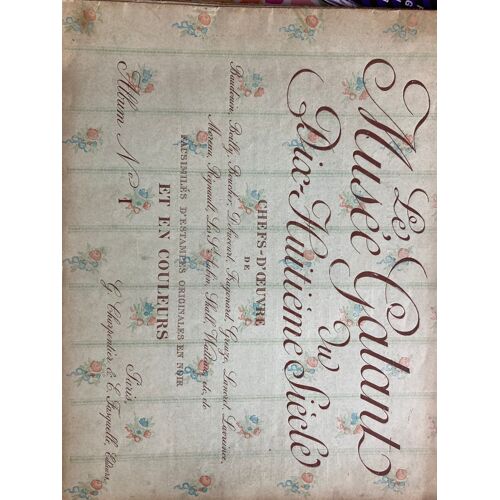 Le
Musée Galant
du
Dix-Huitième Siècle
CHEFS-D'ŒUVRE
DE
Baudouin, Boilly, Boucher, Debucourt, Fragonard, Greuze, Lancret, Lavreince,
Moreau, Regnault, Les St Aubin, Shall, Watteau, etc, etc
FACSIMILÉS D'ESTAMPES ORIGINALES EN NOIR
ET EN COULEURS
Album No 1
Paris
G. Charpentier & E. Fasquelle, Editeurs